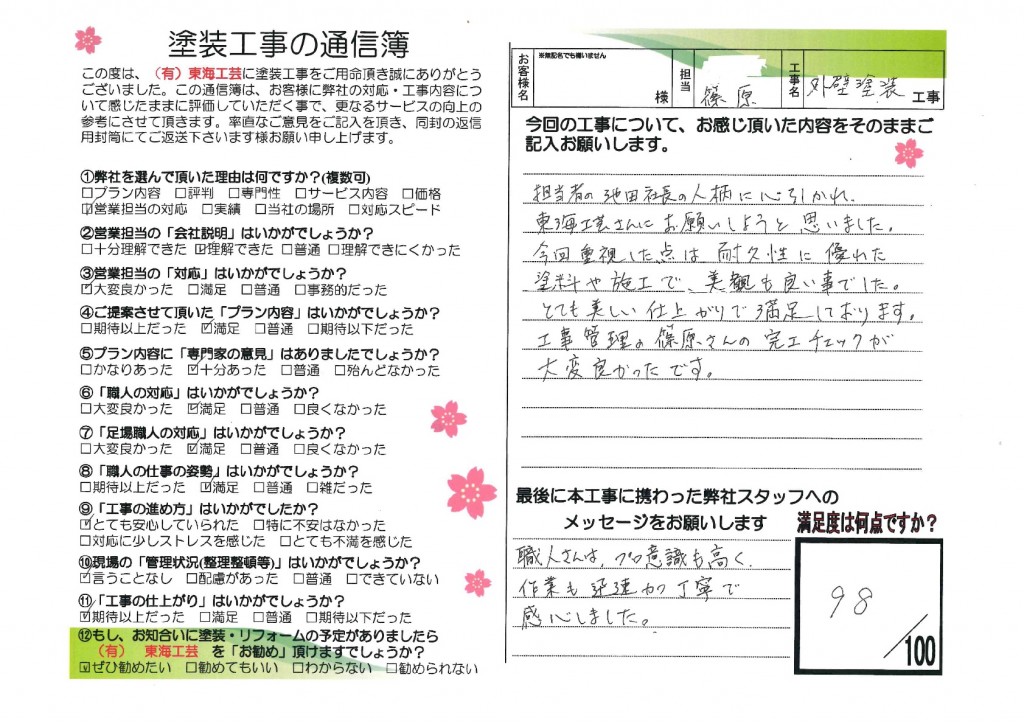 塗装工事の通信簿
この度は、(有)東海工芸に塗装工事をご用命頂き誠にありがとう
ございました。この通信簿は、お客様に弊社の対応・工事内容に
ついて感じたままに評価していただく事で、更なるサービスの向上の
参考にさせて頂きます。率直なご意見をご記入を頂き、同封の返信
用封筒にてご返送下さいます様お願い申し上げます。
①弊社を選んで頂いた理由は何ですか?(複数可)
□プラン内容 □評判 □専門性 □サービス内容 □価格
☑営業担当の対応 □実績 □当社の場所 □対応スピード
②営業担当の「会社説明」はいかがでしょうか?
□十分理解できた ☑理解できた □普通 □理解できにくかった
③営業担当の「対応」はいかがでしょうか?
☑大変良かった □満足 □普通 □事務的だった
④ご提案させて頂いた「プラン内容」はいかがでしょうか?
□期待以上だった ☑満足 □普通 □期待以下だった
⑤プラン内容に「専門家の意見」はありましたでしょうか?
□かなりあった ☑十分あった □普通 □殆んどなかった
⑥「職人の対応」はいかがでしょうか?
□大変良かった ☑満足 □普通 □良くなかった
⑦「足場職人の対応」はいかがでしょうか?
□大変良かった ☑満足 □普通 □良くなかった
⑧「職人の仕事の姿勢」はいかがでしょうか?
□期待以上だった ☑満足 □普通 □雑だった
⑨「工事の進め方」はいかがでしたか?
☑とても安心していられた □特に不安はなかった
□対応に少しストレスを感じた □とても不満を感じた
⑩現場の「管理状況(整理整頓等)」はいかがでしょうか?
☑言うことなし □配慮があった □普通 □できていない
⑪「工事の仕上がり」はいかがでしょうか?
☑期待以上だった □満足 □普通 □期待以下だった
⑫もし、お知合いに塗装・リフォームの予定がありましたら
(有) 東海工芸 を「お勧め」頂けますでしょうか?
☑ぜひ勧めたい □勧めてもいい □わからない □勧められない
お客様名 ※無記名でも構いません 様 担当 篠原 工事名 外壁塗装 工事
今回の工事について、お感じ頂いた内容をそのままご
記入お願いします。
担当者の池田社長の人柄に心引かれ、
東海工芸さんにお願いしようと思いました。
今回重視した点は耐久性に優れた
塗料や施工で、美観も良い事でした。
とても美しい仕上がりで満足しております。
工事管理の篠原さんの完工チェックが
大変良かったです。
最後に本工事に携わった弊社スタッフへの
メッセージをお願いします
職人さんは、プロ意識も高く、
作業も迅速かつ丁寧で
感心しました。
満足度は何点ですか?
98
/100